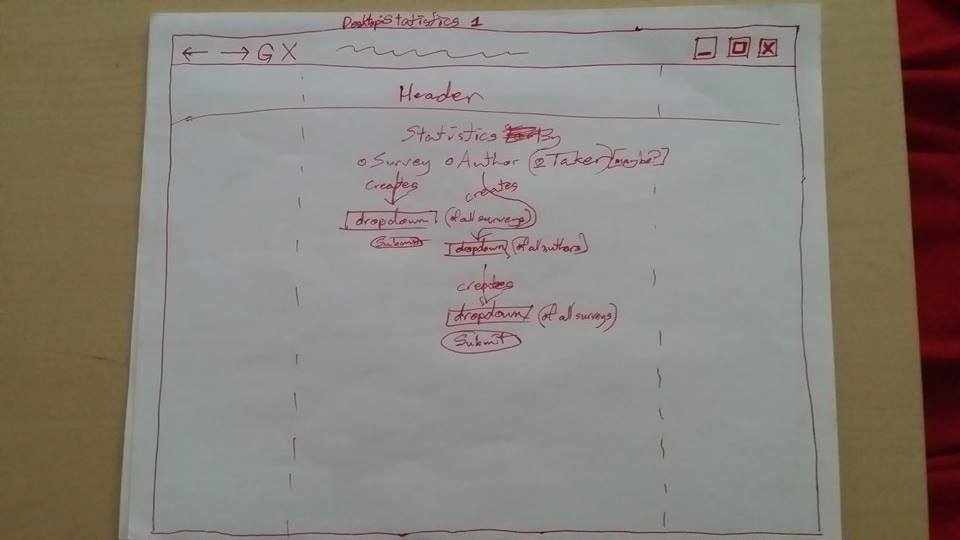 Desktop: Statistics 1
G X
Header
Statistics By
Survey Author (Taker) [maybe?]
creates creates
dropdown (of all surveys)
Submit dropdown (of all authors)
creates
dropdown (of all surveys)
Submit